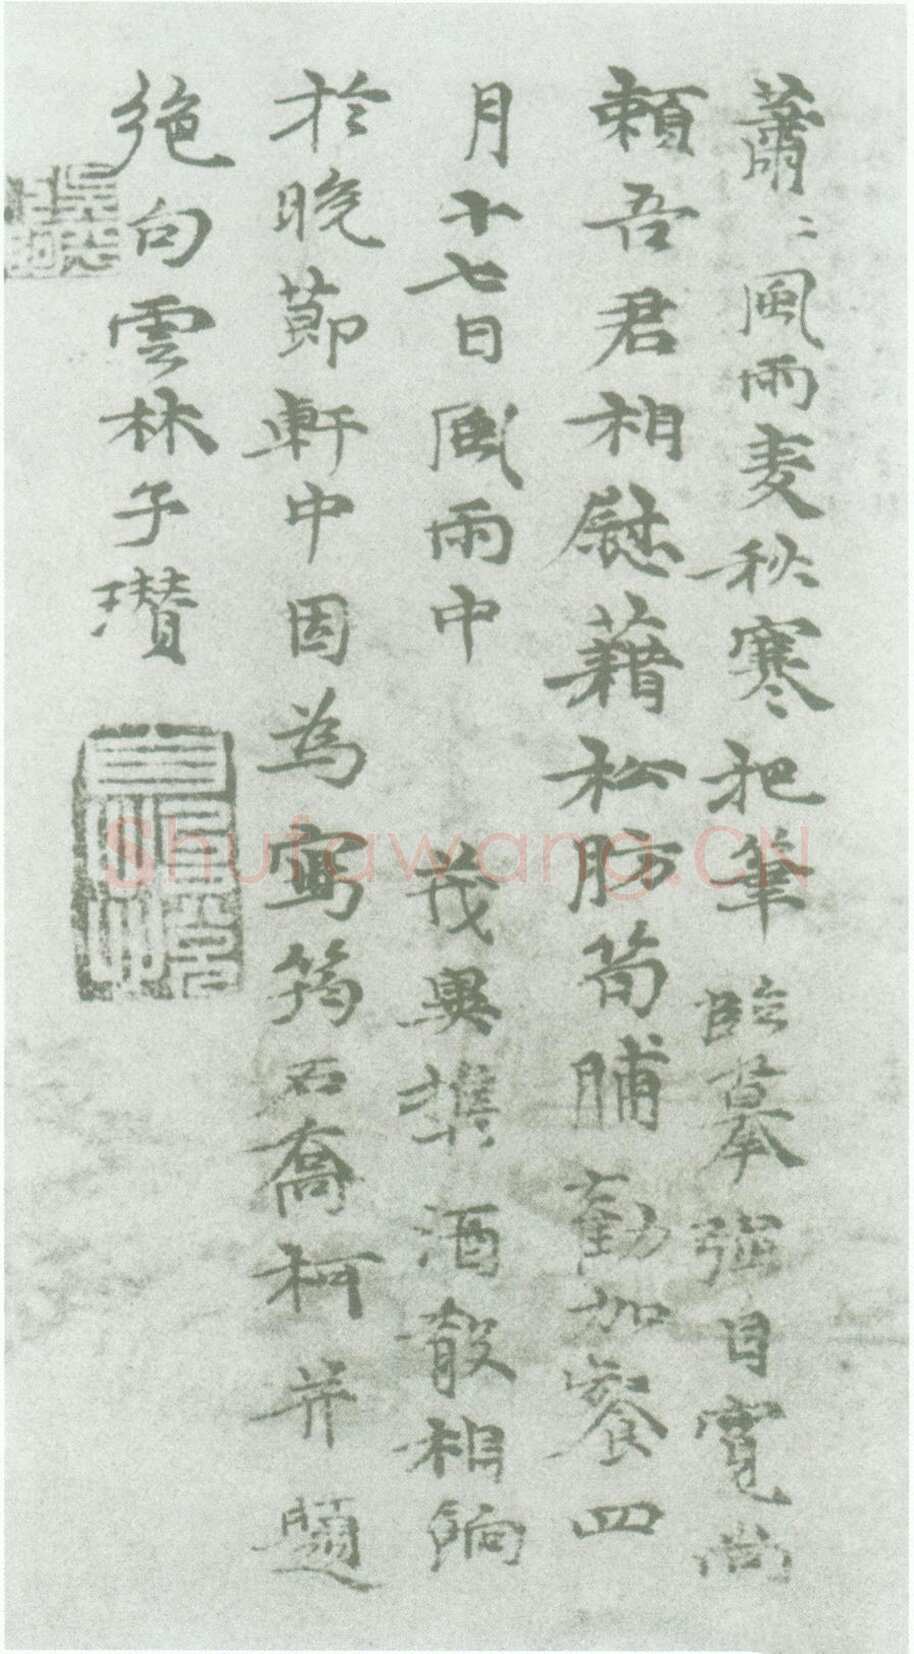 蕭〻風雨麦秋寒把筆臨摹强自寬尚
賴吾君相慰藉松肪筍脯勸加餐四
月十七日風雨中　茂異攜酒殽相餉
於晚節軒中因為寫筠石喬柯并題
絶句雲林子瓚
Shufawang.CN